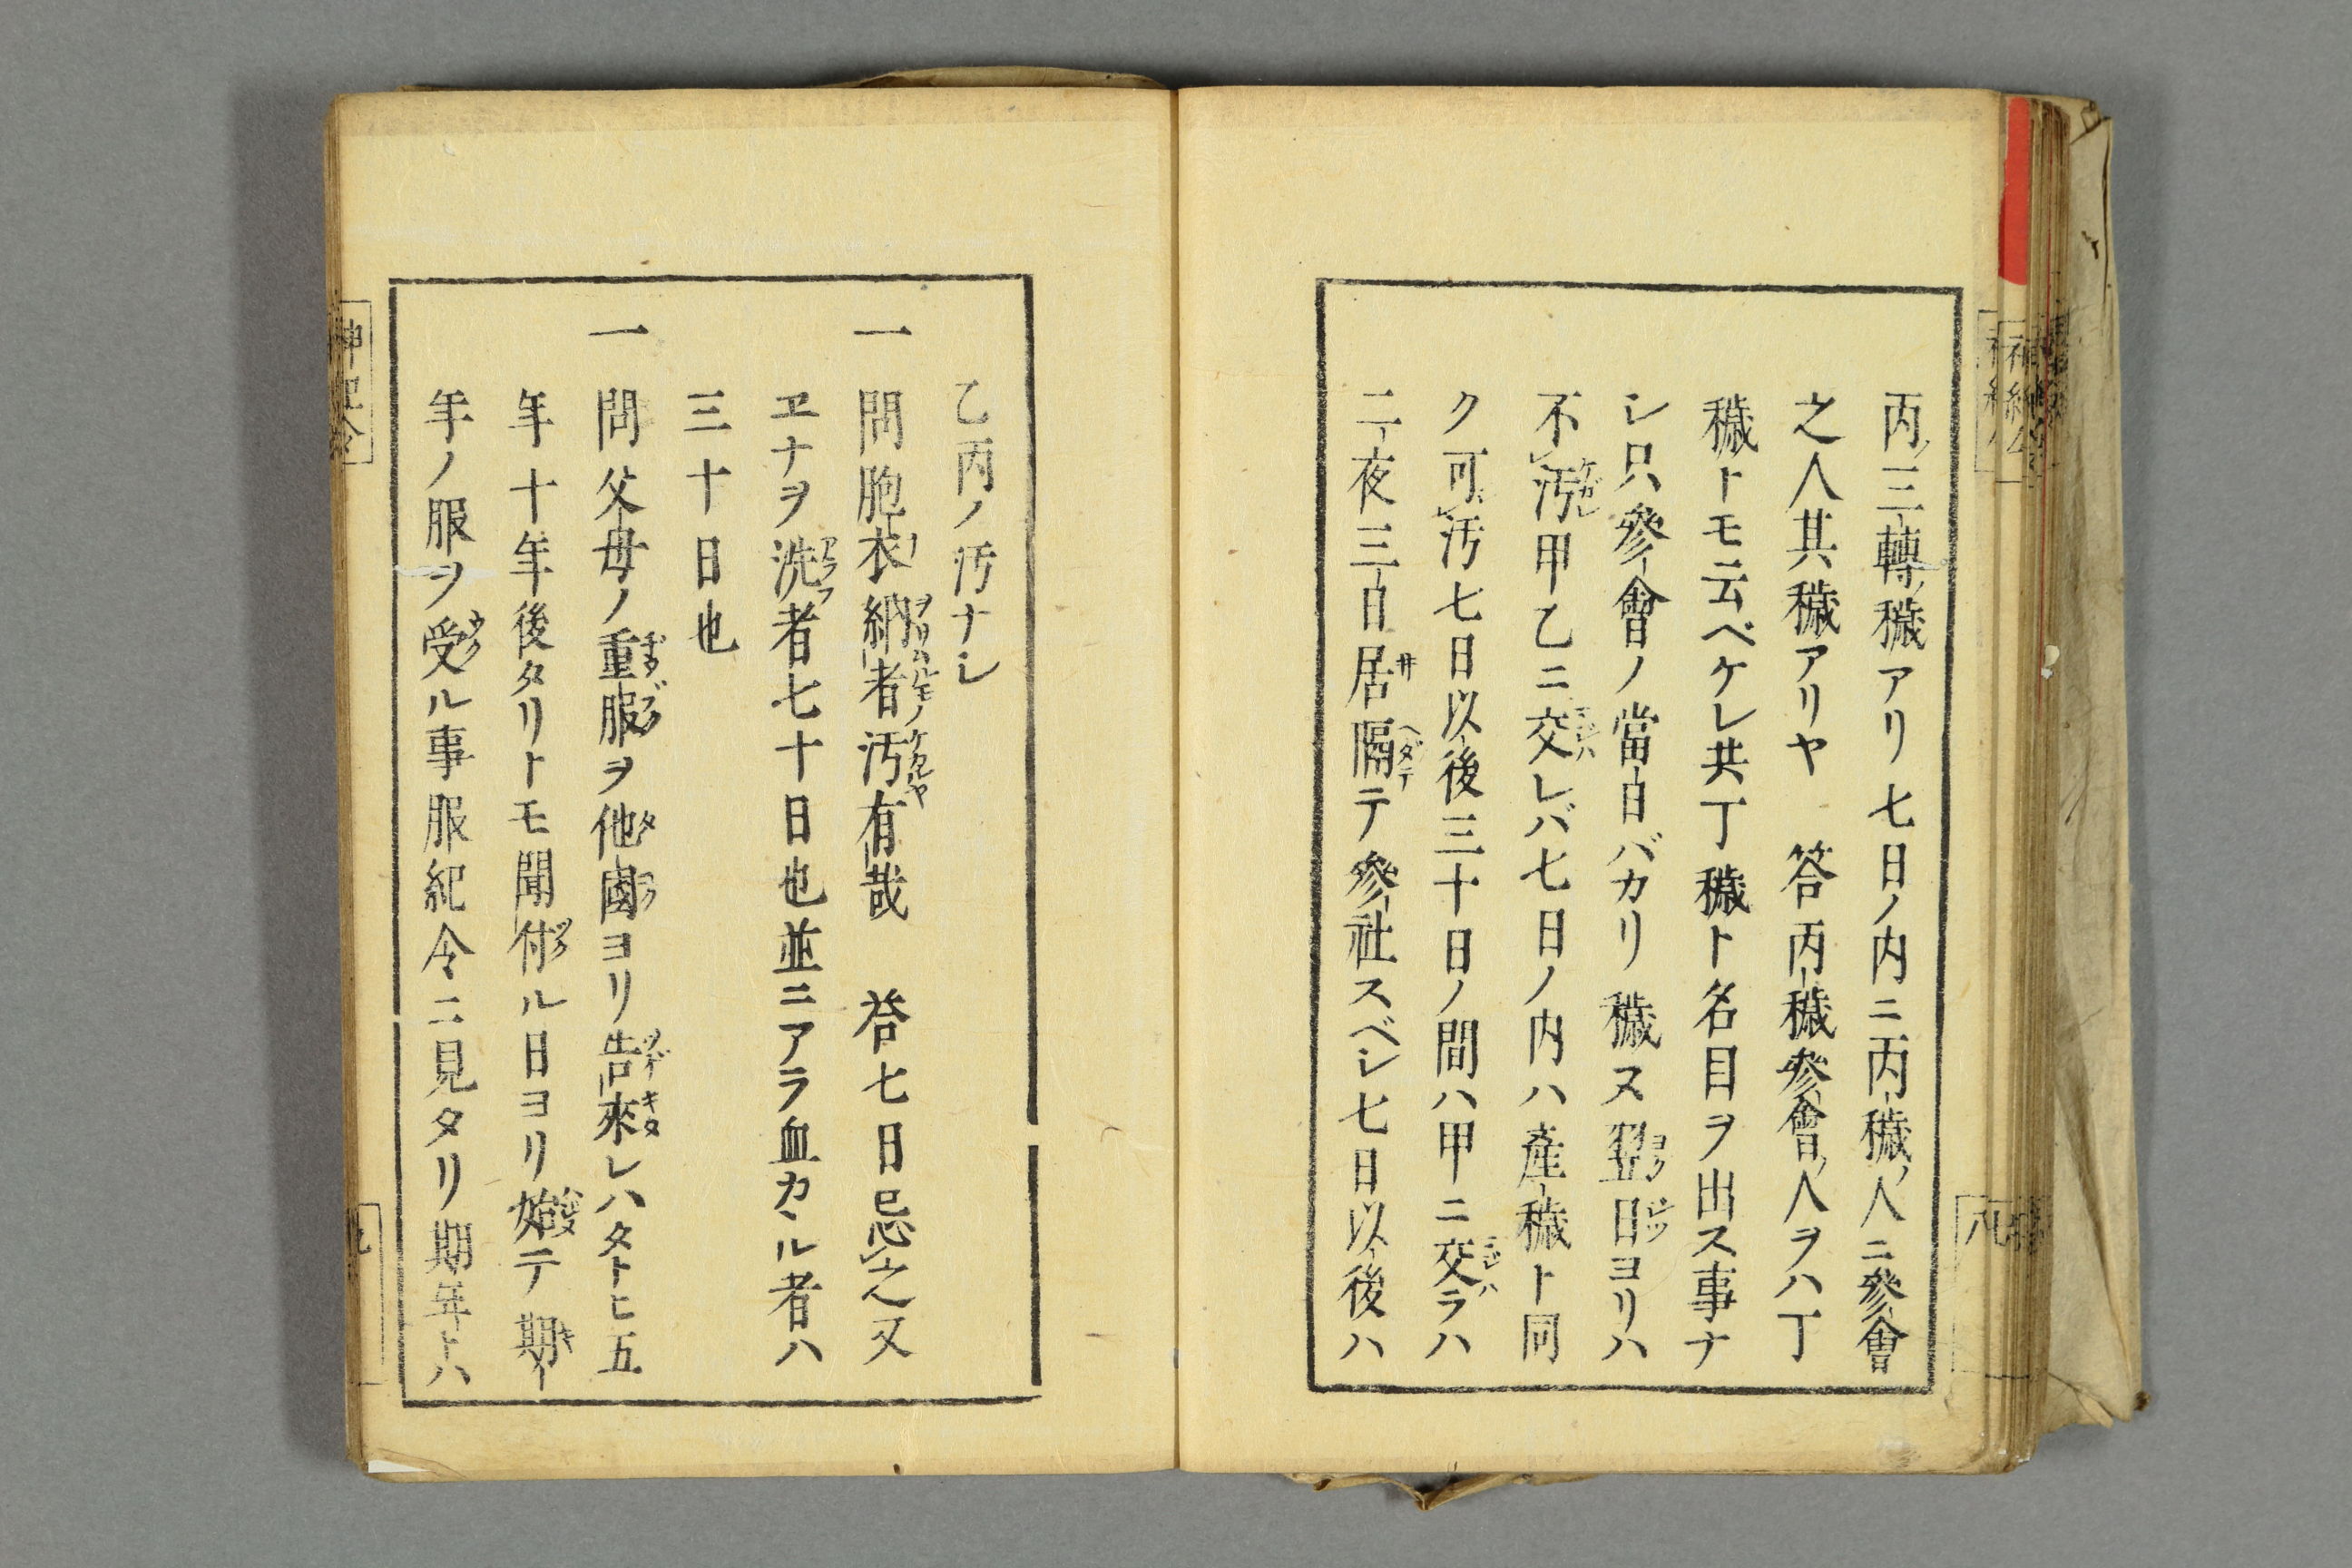 丙ノ三轉ノ穢アリ七日ノ内ニ丙穢ノ人ニ參會
之人其穢アリヤ　答丙穢參會ノ人ヲハ丁
穢トモ云ベケレ共丁穢ト名目ヲ出ス事ナ
シ只參會ノ當日バカリ穢ス翌日ヨリハ
不汚甲乙ニ交レバ七日ノ内ハ產穢ト同
ク可汚七日以後三十日ノ間ハ甲ニ交ラハ
二夜三日居隔テ參社スベシ七日以後ハ
乙丙ノ汚ナシ
一 問胞衣納者汚有哉　答七日忌之又
ヱナヲ洗者七十日也並ニアラ血カヽル者ハ
三十日也
一 問父母ノ重服ヲ他國ヨリ告來レハタトヒ五
年十年後タリトモ聞付ル日ヨリ始テ期
年ノ服ヲ受ル事服紀令ニ見タリ期年トハ